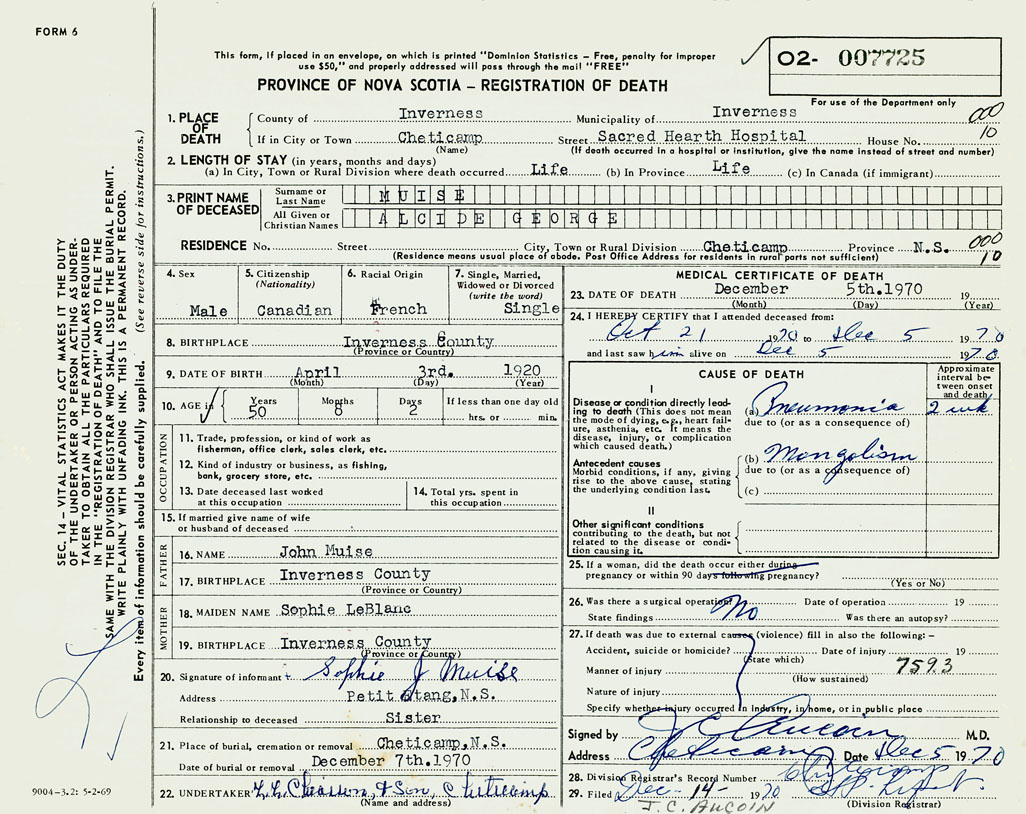 FORM 6
This form, if placed in an envelope, on which is printed "Dominion Statistics - Free, penalty for improper
use $50," and properly addressed will pass through the mail "FREE"
O2- 007725
PROVINCE OF NOVA SCOTIA - REGISTRATION OF DEATH
For use of the Department only
SEC. 14 - VITAL STATISTICS ACT MAKES IT THE DUTY
OF THE UNDERTAKER OR PERSON ACTING AS UNDER-
TAKER TO OBTAIN ALL THE PARTICULARS REQUIRED
IN THE "REGISTRATION OF DEATH" AND TO FILE THE
SAME WITH THE DIVISION REGISTRAR WHO SHALL ISSUE THE BURIAL PERMIT.
WRITE PLAINLY WITH UNFADING INK. THIS IS A PERMANENT RECORD.
Every item of information should be carefully supplied. (See reverse side for instructions.)
1. PLACE OF DEATH
County of Inverness Municipality of Inverness 000
If in City or Town Cheticamp Street Sacred Hearth Hospital House No. 10
(Name) (If death occurred in a hospital or institution, give the name instead of street and number)
2. LENGTH OF STAY (in years, months and days)
(a) In City, Town or Rural Division where death occurred Life (b) In Province Life (c) In Canada (if immigrant)
3. PRINT NAME OF DECEASED
Surname or Last Name MUISE
All Given or Christian Names ALCIDE GEORGE
RESIDENCE No. Street City, Town or Rural Division Cheticamp Province N.S. 000
(Residence means usual place of abode. Post Office Address for residents in rural parts not sufficient) 10
4. Sex
Male
5. Citizenship
(Nationality)
Canadian
6. Racial Origin
French
7. Single, Married,
Widowed or Divorced
(write the word)
Single
8. BIRTHPLACE Inverness County
(Province or Country)
9. DATE OF BIRTH April 3rd. 1920
(Month) (Day) (Year)
10. AGE in Years 50 Months 8 Days 2 If less than one day old
hrs. or min.
OCCUPATION
11. Trade, profession, or kind of work as
fisherman, office clerk, sales clerk, etc.
12. Kind of industry or business, as fishing,
bank, grocery store, etc.
13. Date deceased last worked
at this occupation
14. Total yrs. spent in
this occupation
15. If married give name of wife
or husband of deceased
FATHER
16. NAME John Muise
17. BIRTHPLACE Inverness County
(Province or Country)
MOTHER
18. MAIDEN NAME Sophie LeBlanc
19. BIRTHPLACE Inverness County
(Province or Country)
20. Signature of informant Sophie J Muise
Address Petit Etang, N.S.
Relationship to deceased Sister
21. Place of burial, cremation or removal Cheticamp, N.S.
Date of burial or removal December 7th.1970
22. UNDERTAKER & Son, Cheticamp
(Name and address)
9004-3.2: 5-2-69
MEDICAL CERTIFICATE OF DEATH
23. DATE OF DEATH December 5th.1970 19
(Month) (Day) (Year)
24. I HEREBY CERTIFY that I attended deceased from:
Oct 21 1970 to Dec 5 1970
and last saw him alive on Dec 5 1970
CAUSE OF DEATH
Approximate
interval be-
tween onset
and death
I
Disease or condition directly lead-
ing to death (This does not mean
the mode of dying, e.g., heart fail-
ure, asthenia, etc. It means the
disease, injury, or complication
which caused death.)
(a) Pneumonia 2 wk
due to (or as a consequence of)
Antecedent causes
Morbid conditions, if any, giving
rise to the above cause, stating
the underlying condition last.
(b) Mongolism
due to (or as a consequence of)
(c)
II
Other significant conditions
contributing to the death, but not
related to the disease or condi-
tion causing it.
25. If a woman, did the death occur either during
pregnancy or within 90 days following pregnancy?
(Yes or No)
26. Was there a surgical operation? No Date of operation 19
State findings Was there an autopsy?
27. If death was due to external causes (violence) fill in also the following: -
Accident, suicide or homicide? Date of injury 19
(State which)
Manner of injury 7593
(How sustained)
Nature of injury
Specify whether injury occurred in industry, in home, or in public place
Signed by J C Aucoin M.D.
Address Cheticamp Date Dec 5 1970
28. Division Registrar's Record Number Cheticamp
29. Filed Dec - 14 - 1970
(Division Registrar)
J.C. AUCOIN